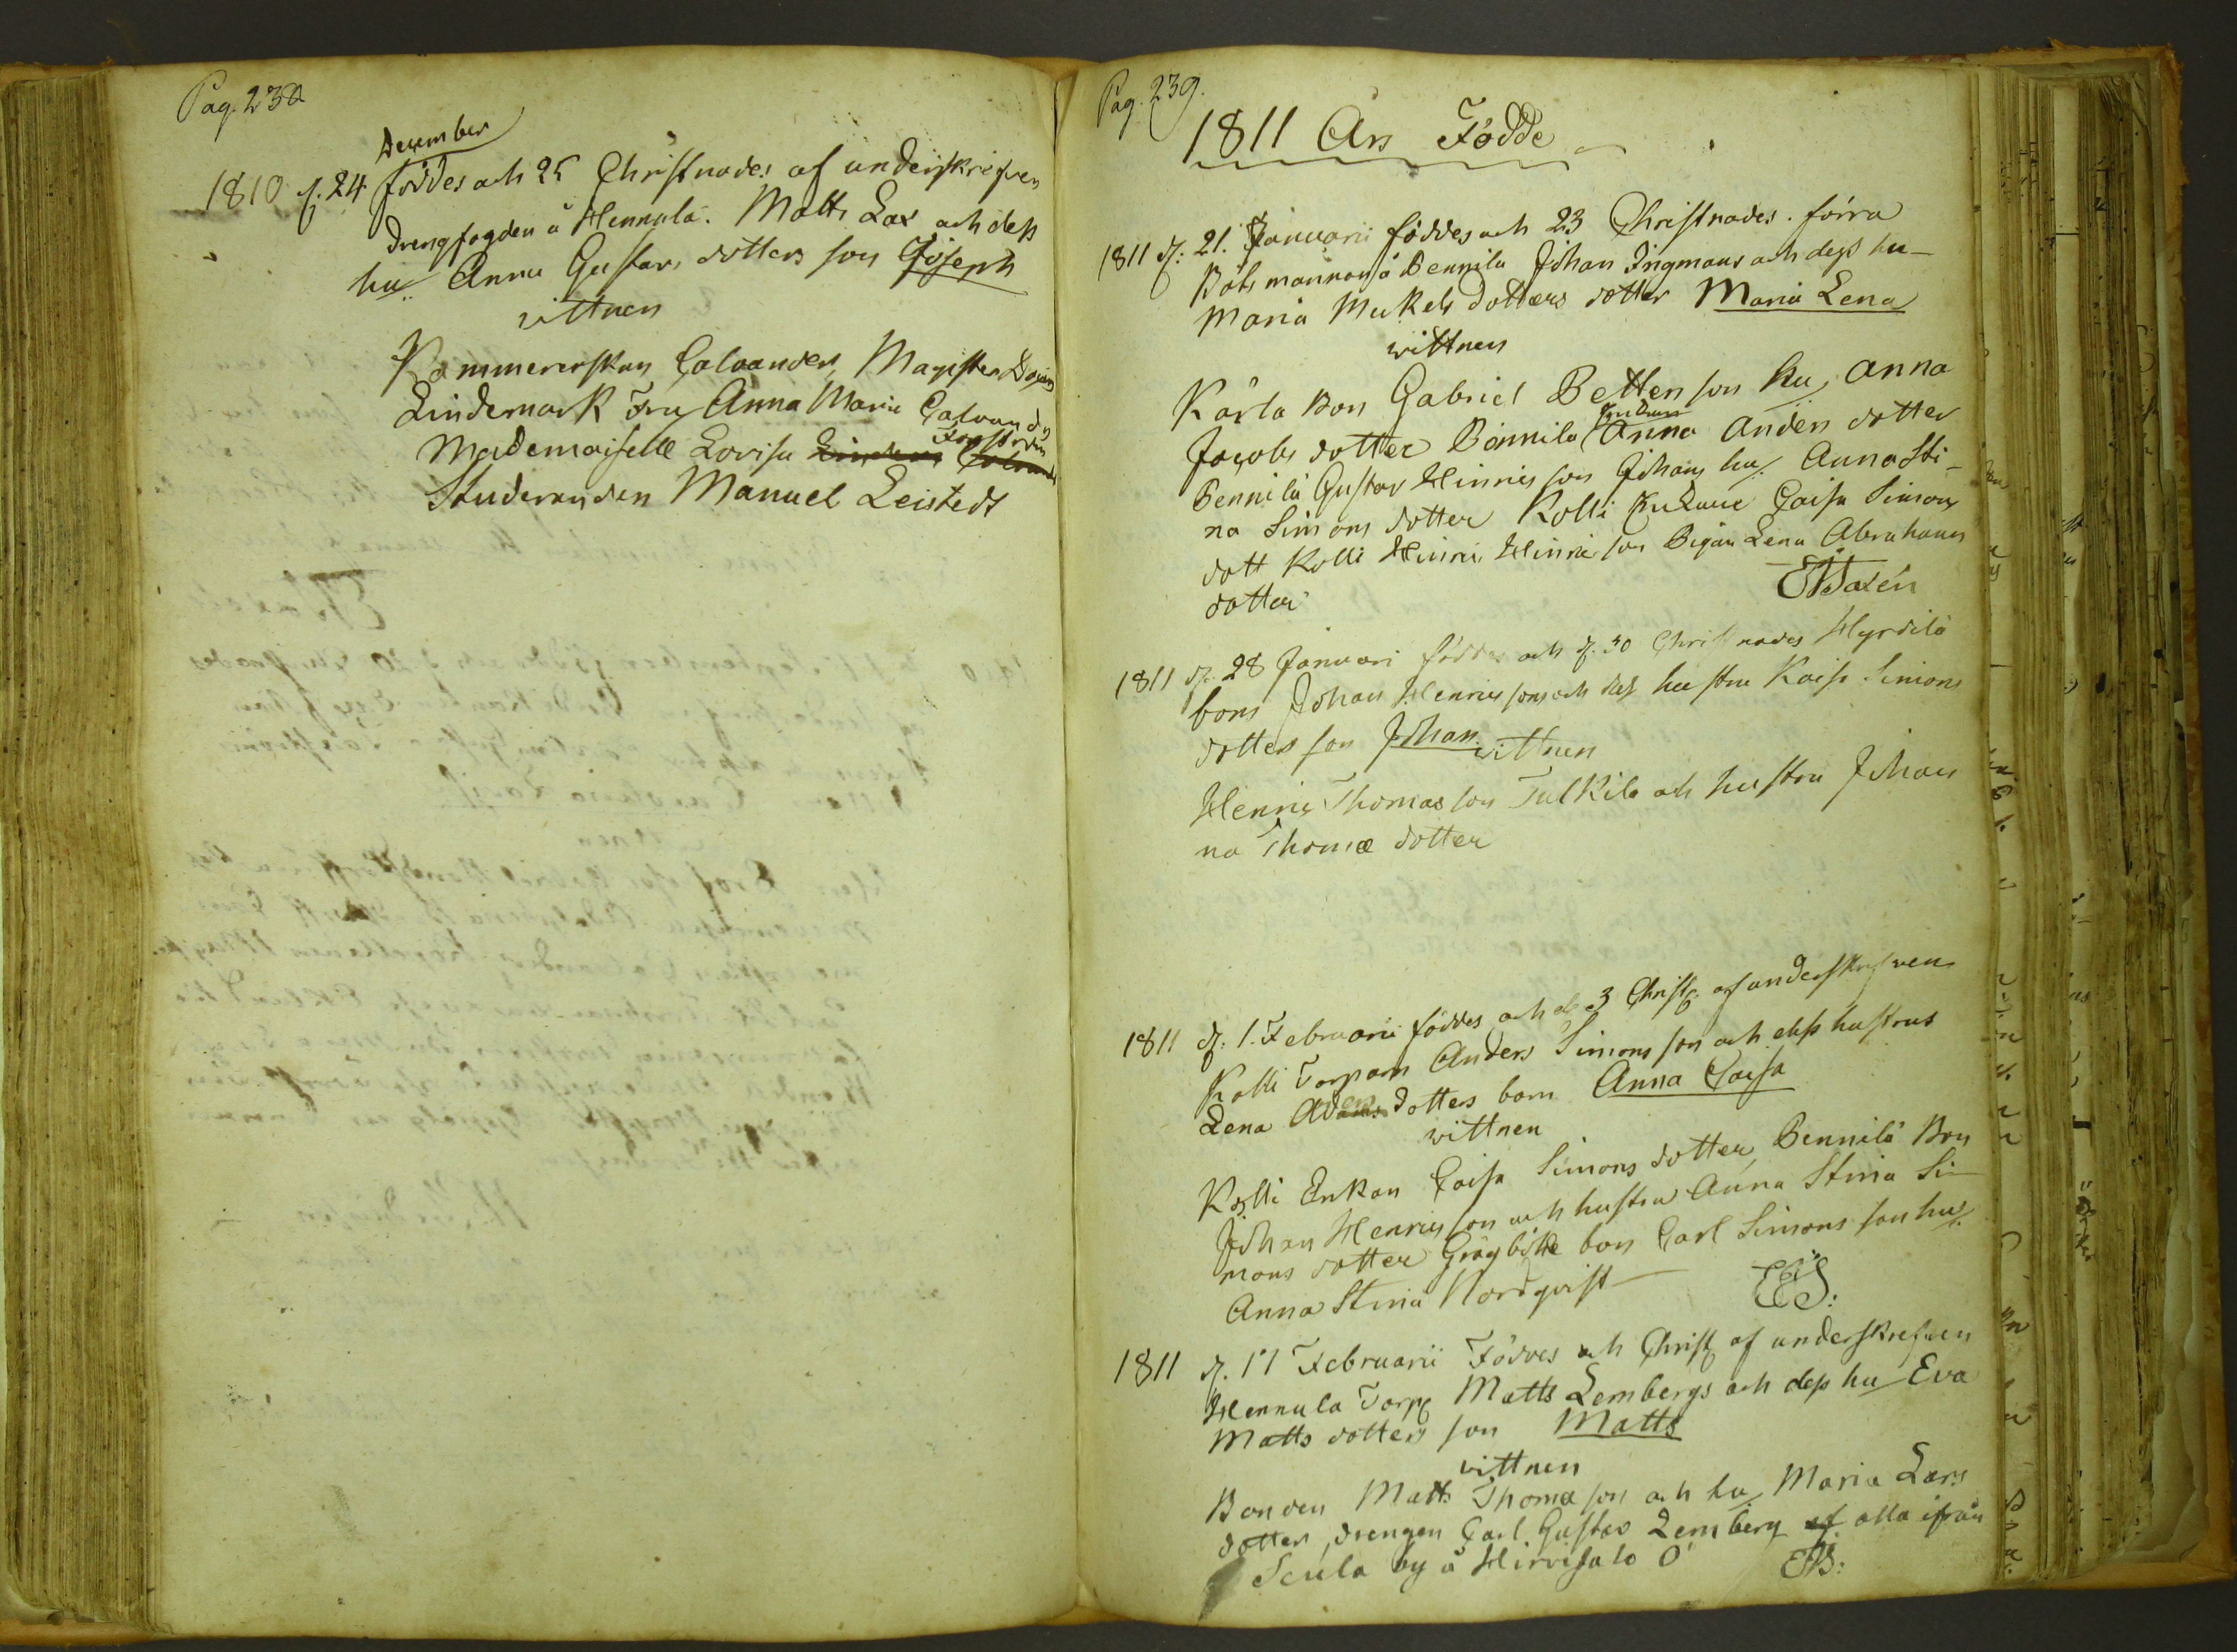 Pag. 238
December
1810 d. 24 föddes och 25 Christnades af underskrifven
Drengfogden å Hennula. Matts Lax och dess
hu Anna Gustavs dotters son Joseph
vittnen
Kammererskan Calvander, Magister
Lindemark Fru Anna Maria Calvander
Mademoiselle Lovisa
Studeranden Manuel Leistedt
Pag. 239.
1811 Års Födde
1811 d: 21. Januarii föddes och 23 Christnades. förra
Båtsmannen å Bennila Johan Ingmans och dess hu-
Maria Mickels dotters dotter Maria Lena
wittnen
Kärla Bon Gabriel Bettenson hu, Anna
Jacobs dotter Bennila Anna Anders dotter
Bennilä Gustav Hinrics son Johans hu. Anna Sti-
na Simons dotter Kolli Caisa Simons
dott Kolli Hinric Hinrics son Lena Abrahams
dotter
1811 d. 28 Januari föddes och d. 30 Christnades Hyrdilä
bons Johan Henricssons och dess hustru Kaisa Simons
dotters son Johan. wittnen
Henric Thomasson Tulkila och hustru Johan
na Thomæ dotter
1811 d: 1. Februarii föddes och de 3 Christ. af underskrifven
Kolli Torparn Anders Simonsson och dess hustrus
Lena dotters barn Anna Caisa
wittnen
Kolli Enkan Caisa Simons dotter, Bennilä Bon
Johan Henricsson och hustru Anna Stina Si-
mons dotter Gräggböle bon Carl Simonsson hu.
Anna Stina Nordqvist
1811 d. 17 Februarii Föddes och Christ af underskrefven
Hennula Torp Matts Lembergs och dess hu Eva
Matts dotters son Matts
wittnen
Bonden Matts Thomæ son och hu Maria Lars
dotter, drengen Carl Gustav Lemberg alla ifrån
by å Hirvisalo Ö